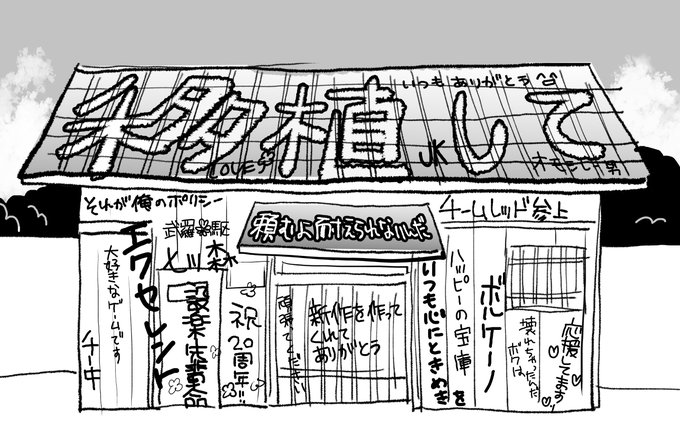 移植して
いつもありがとう
LOVE
JK
オモシレー男
それが俺のポリシー
武羅
駆
七ツ森
エクセレント
大好きなゲームです
チー中
設楽先輩命
祝20周年!!
頼むよ耐えられないんだ
新作を作って
くれて
ありがとう
頑張てください
チームレッド参上
いつも心にときめきを
ハッピーの宝庫
ボルケーノ
壊れちゃったんだ
ボクは
応援してます